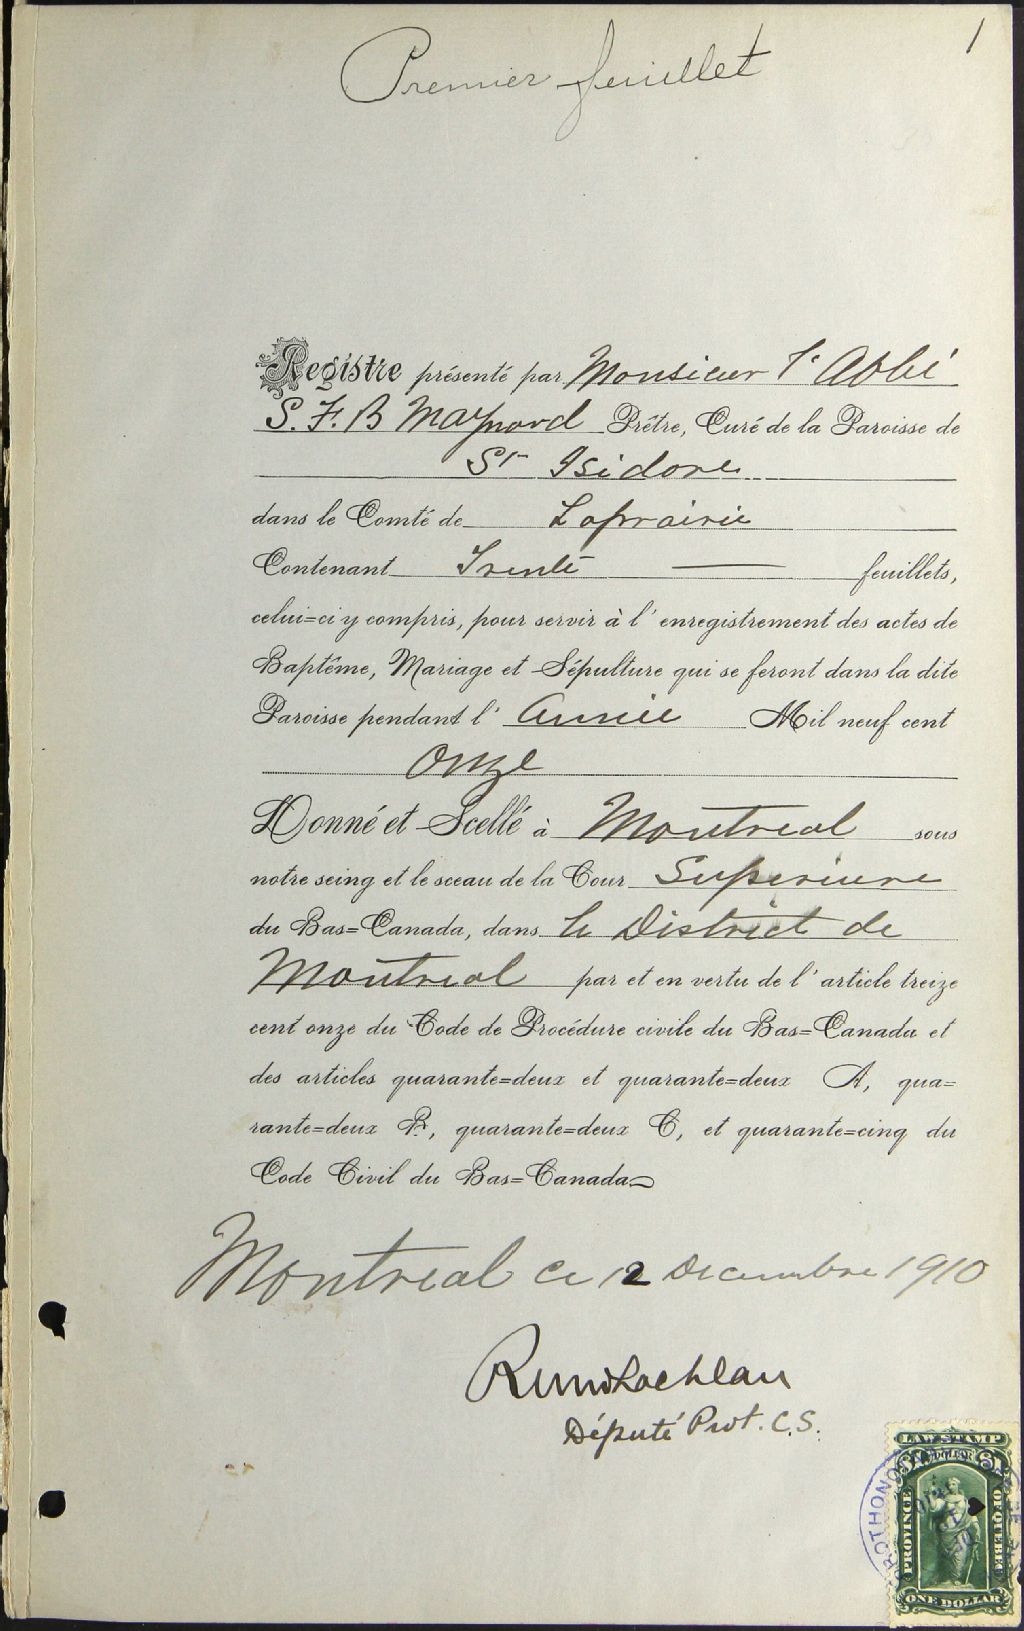 1
Premier feuillet
Registre présenté par Monsieur l'Abbé
S. F. B Maynard Prêtre, Curé de la Paroisse de
St Isidore
dans le Comté de Laprairie
Contenant Trente feuillets,
celui=ci y compris, pour servir à l'enregistrement des actes de
Baptême, Mariage et Sépulture qui se feront dans la dite
Paroisse pendant l'Année Mil neuf cent
Onze
Donné et Scellé à Montreal sous
notre seing et le sceau de la Cour Superieure
du Bas=Canada, dans le District de
Montreal par et en vertu de l'article treize
cent onze du Code de Procédure civile du Bas=Canada et
des articles quarante=deux et quarante=deux A, qua=
rante=deux B, quarante=deux C, et quarante=cinq du
Code Civil du Bas=Canada
Montreal ce 12 Decembre 1910
Député Prot. C.S.
LAW STAMP
$1 DOLLAR $1
PROVINCE OF QUEBEC
ONE DOLLAR